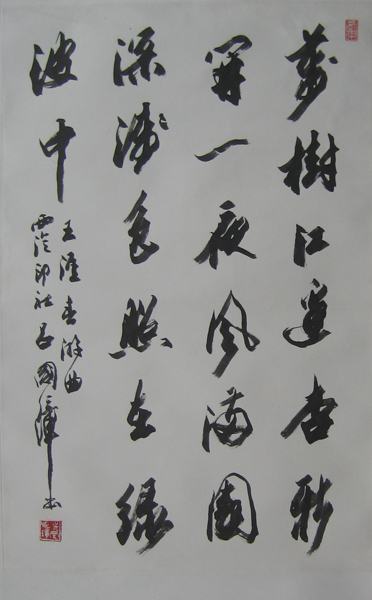 萬樹江邊杏新
開一夜風滿園
深淺色照在綠
波中
王涯春游曲
西泠印社吕國璋书